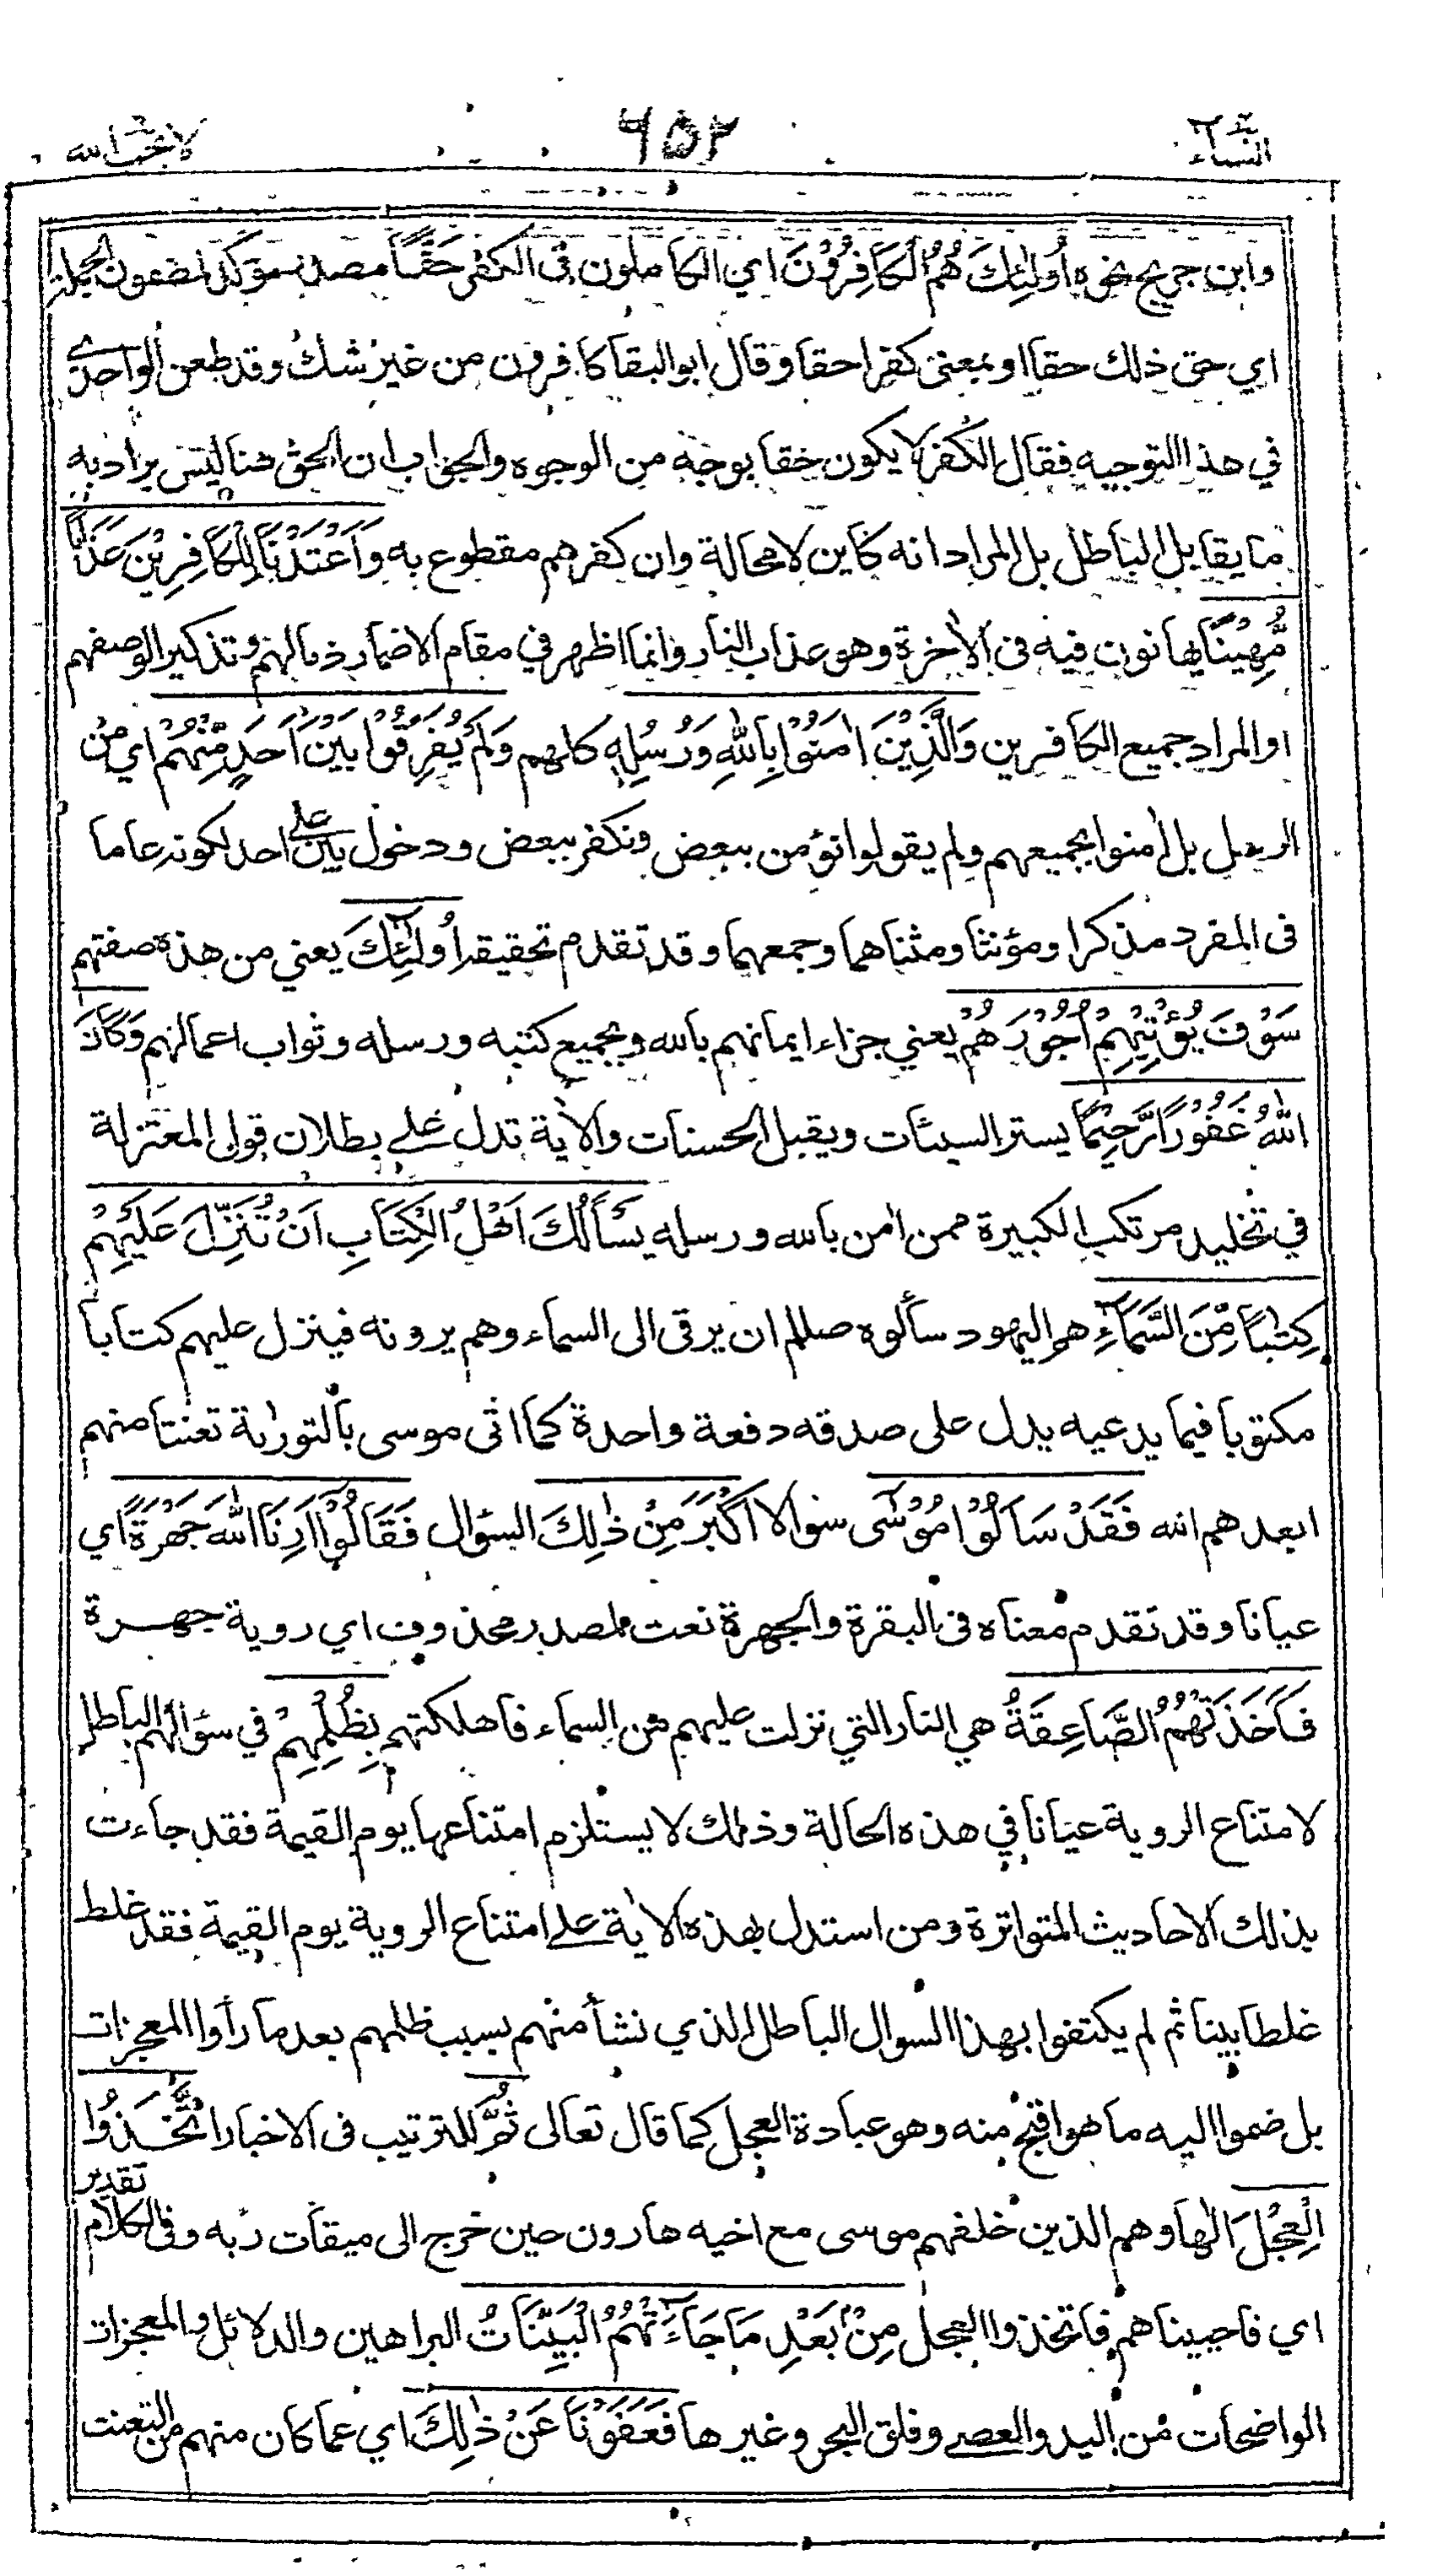 النساء ٤
٦٥٢
لا يحب الله
وابن جريج نحوه أُولٰئِكَ هُمُ الْكَافِرُوْنَ اي الكاملون في الكفر حَقًّا مصدر مؤكد لمضمون الجملة
اي حق ذلك حقا او بمعنى كفرا حقا وقال ابو البقا كافرون من غير شك وقد طعن الواحدي
في هذا التوجيه فقال الكفر لا يكون حقا بوجه من الوجوه والجواب ان الحق هنا ليس يراد به
ما يقابل الباطل بل المراد انه كاين لا محالة وان كفرهم مقطوع به وَاَعْتَدْنَا لِلْكَافِرِيْنَ عَذَابًا
مُّهِيْنًا يهانون فيه في الآخرة وهو عذاب النار وانما اظهر في مقام الاضمار ذما لهم وتذكيرا لوصفهم
او المراد جميع الكافرين وَالَّذِيْنَ اٰمَنُوْا بِاللّٰهِ وَرُسُلِهٖ كلهم وَلَمْ يُفَرِّقُوْا بَيْنَ اَحَدٍ مِّنْهُمْ اي من
الرسل بل اٰمنوا بجميعهم ولم يقولوا نؤمن ببعض ونكفر ببعض ودخول بين على احد لكونه عاما
في المفرد مذكرا ومؤنثا ومثناهما وجمعهما وقد تقدم تحقيقه اُولٰٓئِكَ يعني من هذه صفتهم
سَوْفَ يُؤْتِيْهِمْ اُجُوْرَهُمْ يعني جزاء ايمانهم بالله وبجميع كتبه ورسله وثواب اعمالهم وَكَانَ
اللّٰهُ غَفُوْرًا رَّحِيْمًا يستر السيئات ويقبل الحسنات والآية تدل على بطلان قول المعتزلة
في تخليد مرتكب الكبيرة ممن اٰمن بالله ورسله يَسْأَلُكَ اَهْلُ الْكِتَابِ اَنْ تُنَزِّلَ عَلَيْهِمْ
كِتٰبًا مِّنَ السَّمَآءِ هو اليهود سألوه صللم ان يرقى الى السماء وهم يرونه فينزل عليهم كتابا
مكتوبا فيما يدعيه يدل على صدقه دفعة واحدة كما اتى موسى بالتوراة تعنتا منهم
ابعدهم الله فَقَدْ سَاَلُوْا مُوْسٰى سوالا اَكْبَرَ مِنْ ذٰلِكَ السؤال فَقَالُوْا اَرِنَا اللّٰهَ جَهْرَةً اي
عيانا وقد تقدم معناه في البقرة والجهرة نعت لمصدر محذوف اي روية جهرة
فَاَخَذَتْهُمُ الصَّاعِقَةُ هي النار التي نزلت عليهم من السماء فاهلكتهم بِظُلْمِهِمْ في سؤالهم الباطل
لامتناع الروية عيانا في هذه الحالة وذلك لا يستلزم امتناعها يوم القيمة فقد جاءت
بذلك الاحاديث المتواترة ومن استدل بهذه الاية على امتناع الروية يوم القيمة فقد غلط
غلطا بينا ثم لم يكتفوا بهذا السوال الباطل الذي نشأ منهم بسبب ظلمهم بعد ما رأوا المعجزات
بل ضموا اليه ما هو اقبح منه وهو عبادة العجل كما قال تعالى ثُمَّ للترتيب في الاخبار اتَّخَذُوا
الْعِجْلَ الٰها وهم الذين خلفهم موسى مع اخيه هارون حين خرج الى ميقات ربه وفي الكلام تقدير
اي فاحييناهم فاتخذوا العجل مِنْ بَعْدِ مَا جَآءَتْهُمُ الْبَيِّنَاتُ البراهين والدلائل والمعجزات
الواضحات من اليد والعصى وفلق البحر وغيرها فَعَفَوْنَا عَنْ ذٰلِكَ اي عما كان منهم من التعنت